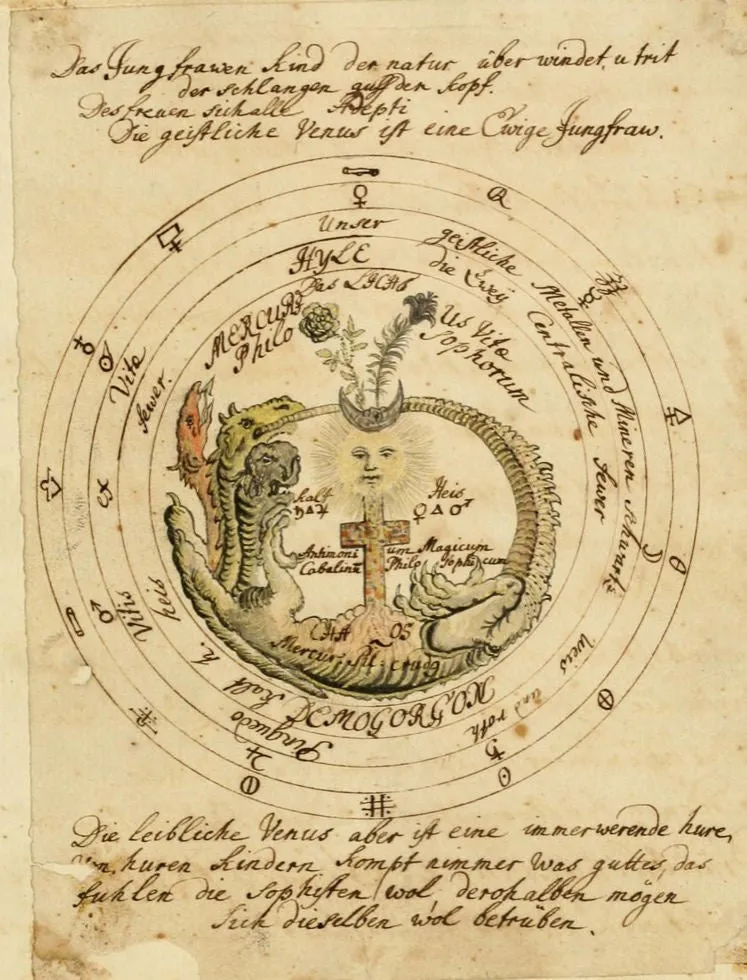 Das Jungfrawen Kind der natur überwindet u trit
der schlangen auff der kopf.
Des freuen sich alle Adepti
Die geistliche Venus ist eine Ewige Jungfraw.
Unser
HYLE
Das LICHT
geistliche
die Zweÿ
Metallen und Mineren schwartz
Centralische fewer
weis
und roth
MERCURI
Philo
us Vitæ
Sophorum
Vitæ
fewer.
Kalt
Heis
♄🜁♃
♀🜂♂
Antimoni
um Magicum
Cabalinū
Philo Sophicum
CHA OS
Mercur
crudꝫ
DEMOGORGON
Pinguedo
kalt h.
Vitis
heis
Die leibliche Venus aber ist eine immerwerende hure,
Von huren Kindern kompt nimmer was guttes, das
fuhlen die Sophisten wol, derohalben mögen
sich dieselben wol betrüben.